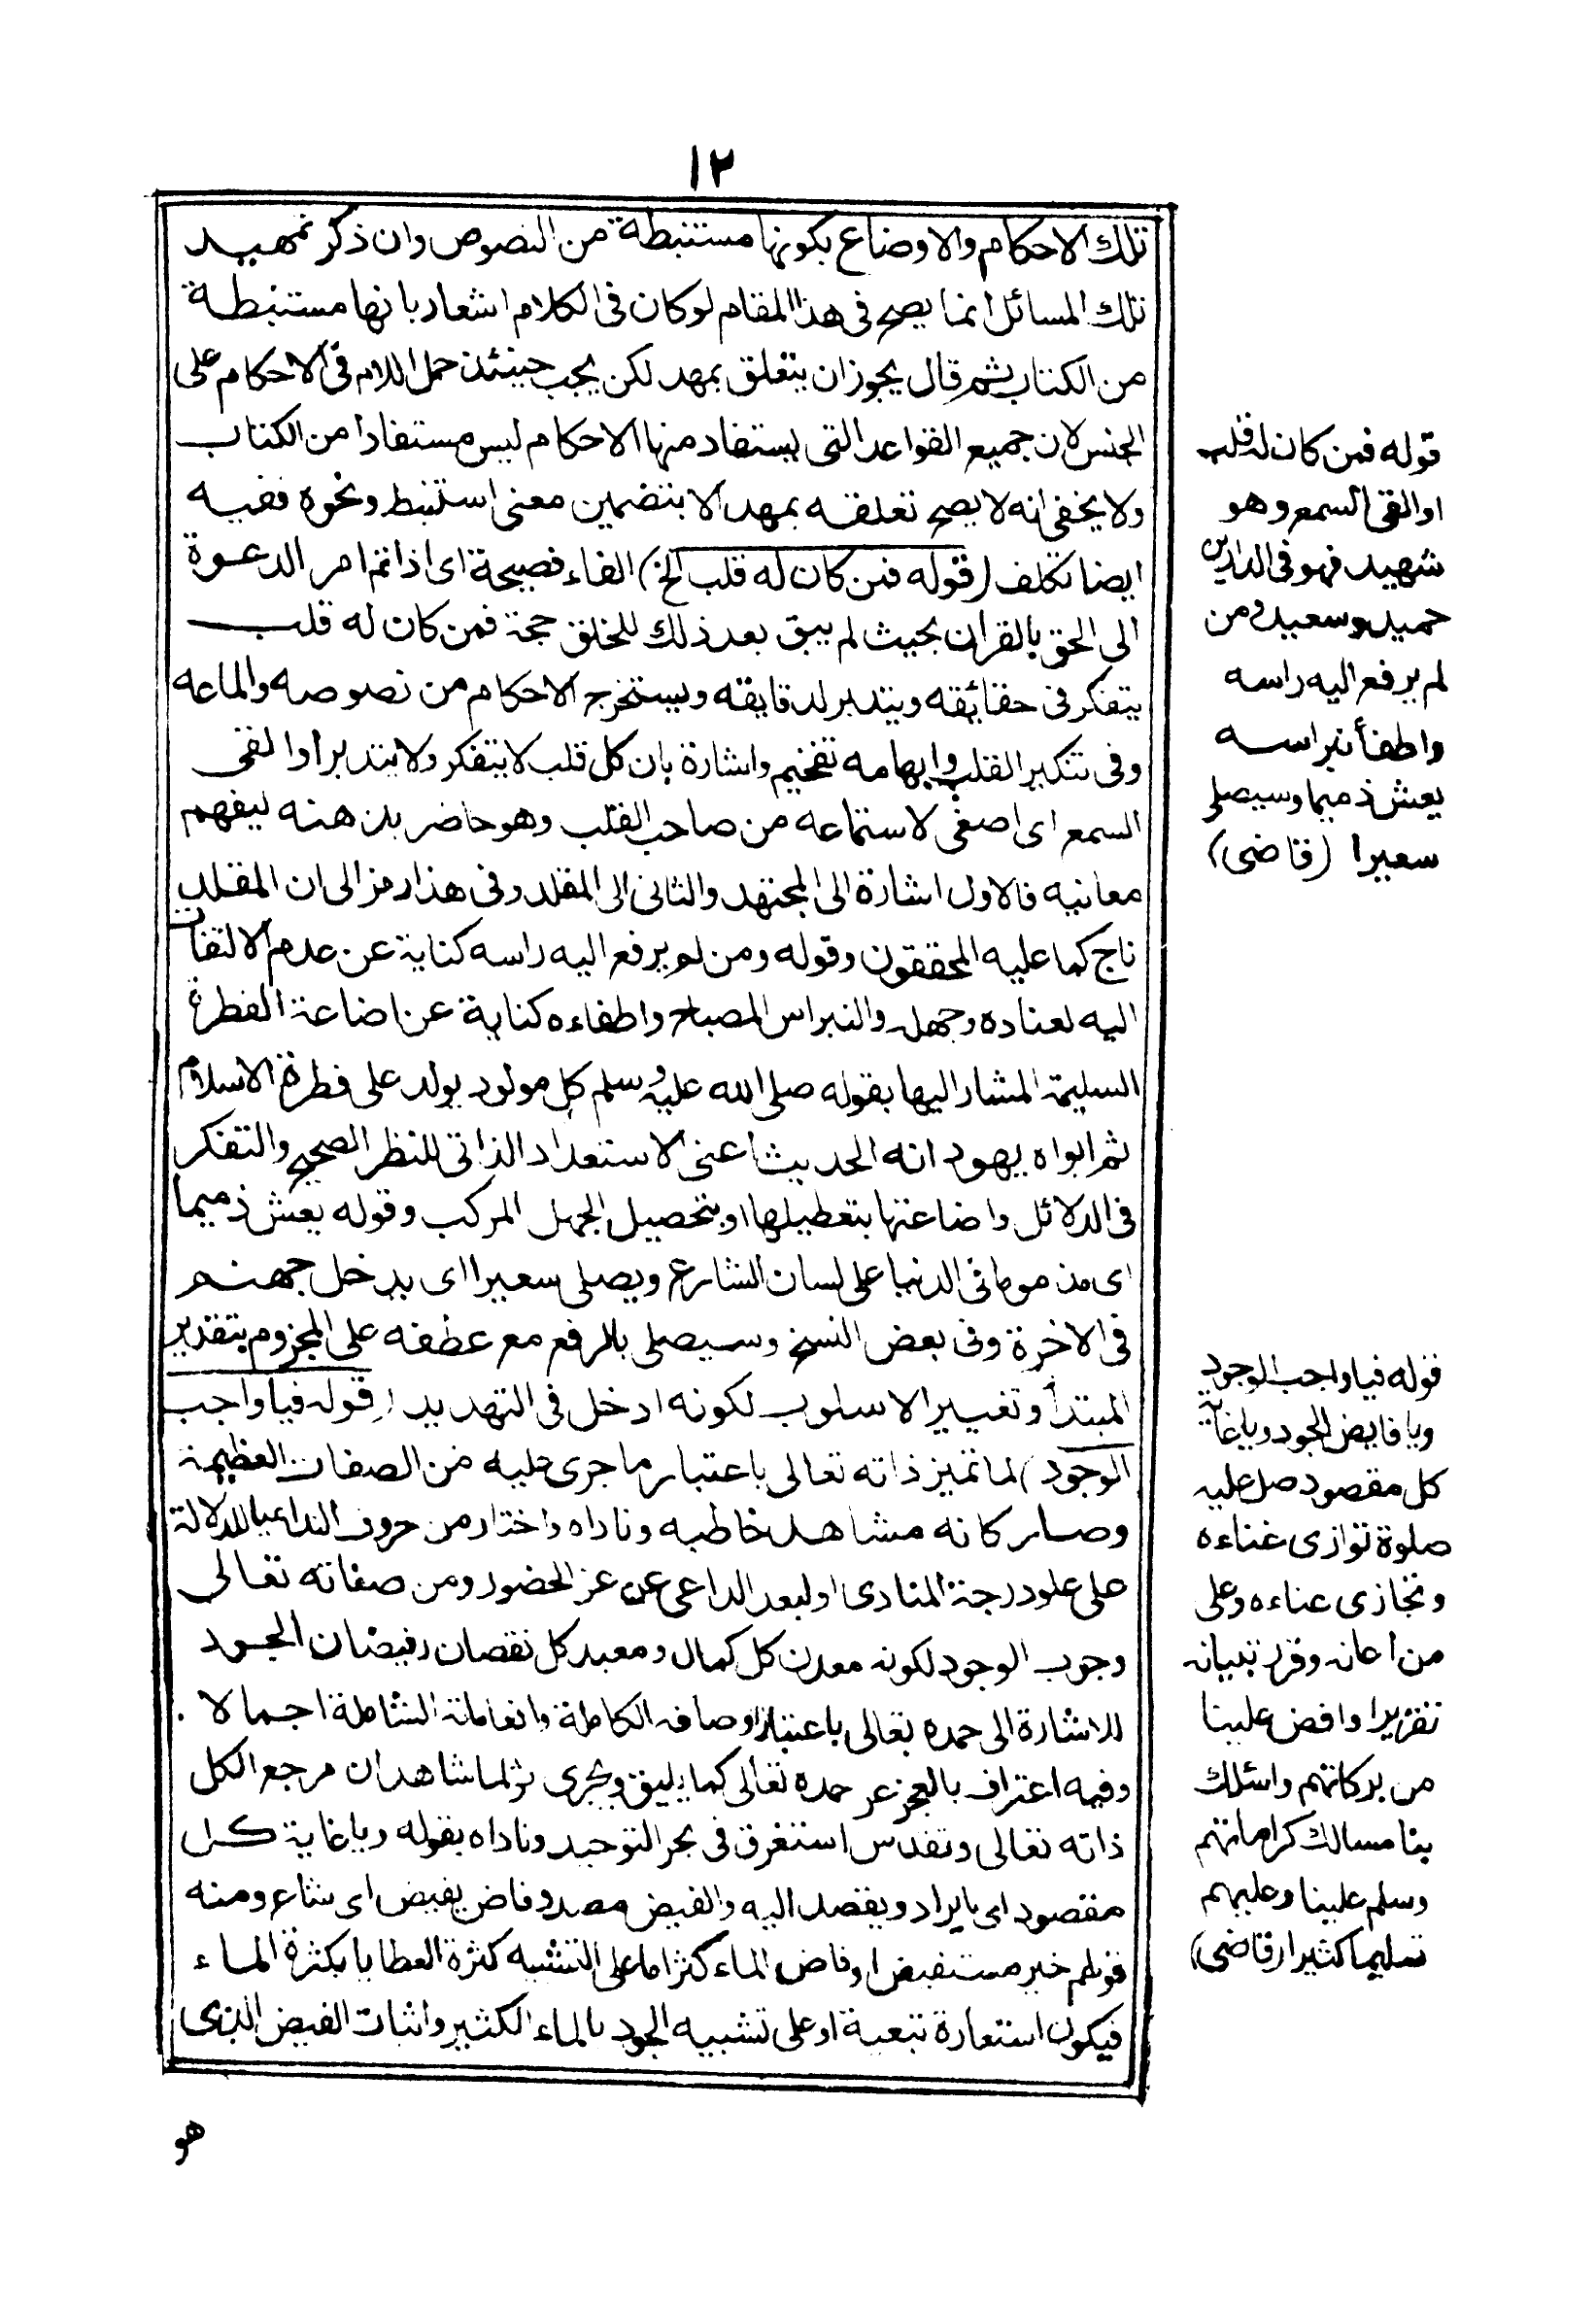 ١٢
تلك الاحكام والاوضاع بكونها مستنبطة من النصوص وان ذكر تمهيد
تلك المسائل انما يصح فى هذا المقام لو كان فى الكلام اشعار بانها مستنبطة
من الكتاب ثم قال يجوز ان يتعلق بمهد لكن يجب حينئذ حمل اللام فى الاحكام على
الجنس لان جميع القواعد التى يستفاد منها الاحكام ليس مستفادا من الكتاب
ولا يخفى انه لا يصح تعلقه بمهد الا بتضمين معنى استنبط ونحوه ففيه
ايضا تكلف (قوله فمن كان له قلب الخ) الفاء فصيحة اى اذا تم امر الدعوة
الى الحق بالقران بحيث لم يبق بعد ذلك للخلق حجة فمن كان له قلب
يتفكر فى حقائقه ويتدبر لدقايقه ويستخرج الاحكام من نصوصه والماعه
وفى تنكير القلب وابهامه تفخيم واشارة بان كل قلب لا يتفكر ولا يتدبر او القى
السمع اى اصغى لاستماعه من صاحب القلب وهو حاضر بذهنه ليفهم
معانيه فالاول اشارة الى المجتهد والثانى الى المقلد وفى هذا رمز الى ان المقلد
ناج كما عليه المحققون وقوله ومن لم يرفع اليه راسه كناية عن عدم الالتفات
اليه لعناده وجهله والنبراس المصباح واطفاءه كناية عن اضاعة الفطرة
السليمة المشار اليها بقوله صلى الله عليه وسلم كل مولود يولد على فطرة الاسلام
ثم ابواه يهودانه الحديث اعنى الاستعداد الذاتى للنظر الصحيح والتفكر
فى الدلائل واضاعتها بتعطيلها او بتحصيل الجهل المركب وقوله يعش ذميما
اى مذموما فى الدنيا على لسان الشارع ويصلى سعيرا اى يدخل جهنم
فى الاخرة وفى بعض النسخ وسيصلى بالرفع مع عطفه على المجزوم بتقدير
المبتدأ وتغيير الاسلوب لكونه ادخل فى التهديد (قوله فيا واجب
الوجود) لما تميز ذاته تعالى باعتبار ما جرى عليه من الصفات العظيمة
وصار كانه مشاهد خاطبه وناداه واختار من حروف النداء يا للدلالة
على علو درجة المنادى او لبعد الداعى عن عز الحضور ومن صفاته تعالى
وجوب الوجود لكونه معدن كل كمال ومبعد كل نقصان وفيضان الجود
للاشارة الى حمده تعالى باعتبار اوصافه الكاملة وانعاماته الشاملة اجمالا
وفيه اعتراف بالعجز عن حمده تعالى كما يليق ويحرى ثم لما شاهد ان مرجع الكل
ذاته تعالى وتقدس استغرق فى بحر التوحيد وناداه بقوله ويا غاية كل
مقصود اى يا يراد ويقصد اليه والفيض مصدر فاض يفيض اى شاع ومنه
قولهم خبر مستفيض او فاض الماء كثر اما على التشبيه كثرة العطايا بكثرة الماء
فيكون استعارة تبعية او على تشبيه الجود بالماء الكثير واثبات الفيض الذى
هو
قوله فمن كان له قلب
او القى السمع وهو
شهيد فهو فى الدارين
حميد وسعيد ومن
لم يرفع اليه راسه
واطفأ نبراسه
يعش ذميما وسيصلى
سعيرا (قاضى)
قوله فيا واجب الوجود
ويا فايض الجود ويا غاية
كل مقصود صل عليه
صلوة توازى غناءه
وتجازى عناءه وعلى
من اعانه وقرر تبيانه
تقريرا وافض علينا
من بركاتهم واسلك
بنا مسالك كراماتهم
وسلم علينا وعليهم
تسليما كثيرا (قاضى)